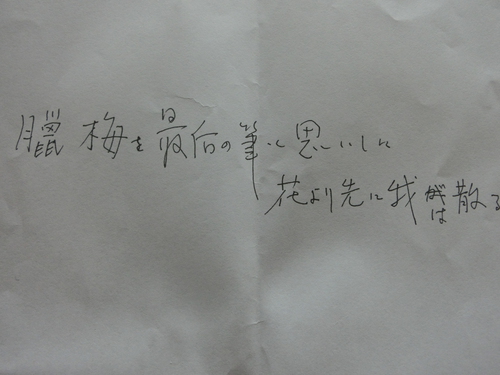 臘梅を最后の筆に思いしに
花より先に我は散る